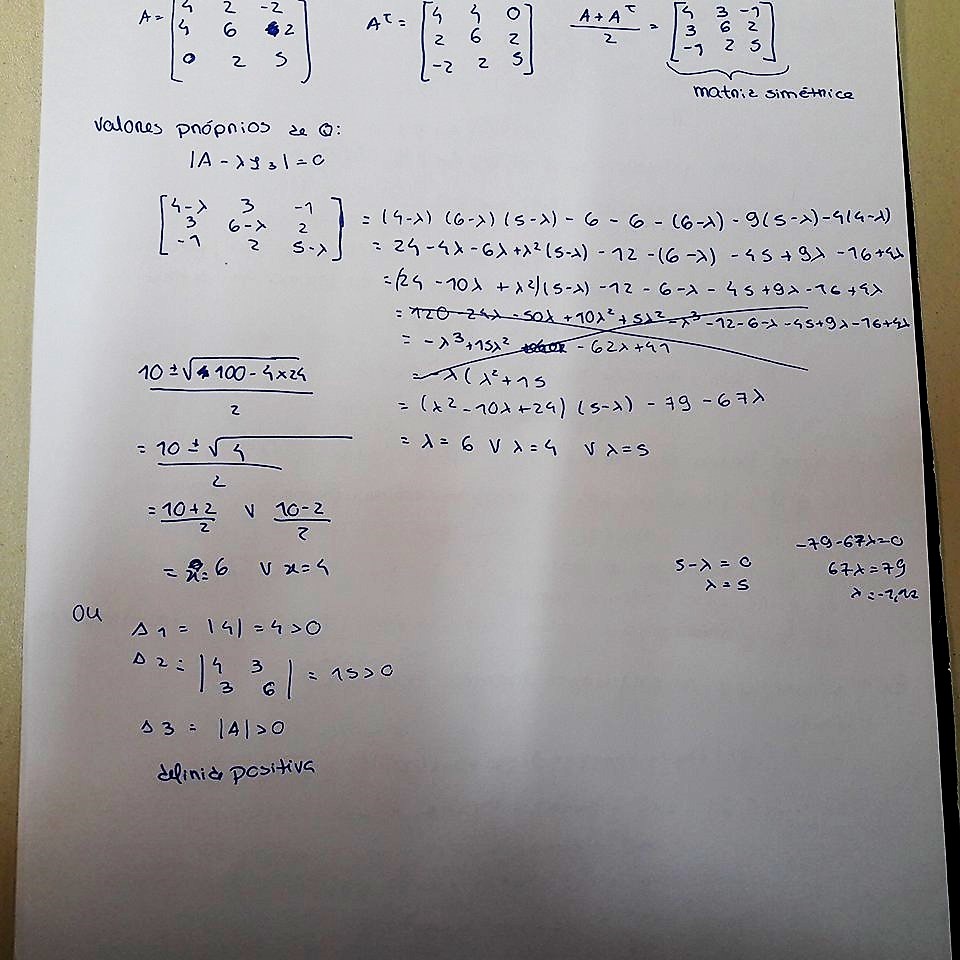 A = [4 2 -2 A^T = [4 4 0 A + A^T / 2 = [4 3 -1
4 6 2 2 6 2 3 6 2
0 2 5] -2 2 5] -1 2 5]
matriz simétrica
Valores próprios de Q:
|A - λI3| = 0
[4-λ 3 -1
3 6-λ 2
-1 2 5-λ]
= (4-λ) (6-λ) (5-λ) - 6 - 6 - (6-λ) - 9(5-λ) - 4(4-λ)
= 24 - 4λ - 6λ + λ²(5-λ) - 12 - (6-λ) - 45 + 9λ - 16 + 4λ
= (24 - 10λ + λ²)(5-λ) - 12 - 6 - λ - 45 + 9λ - 16 + 4λ
= 120 - 24λ - 50λ + 10λ² + 5λ² - λ³ - 12 - 6 - λ - 45 + 9λ - 16 + 4λ
= -λ³ + 15λ² - 62λ + 41
= -λ(λ² + 15
= (λ² - 10λ + 24) (5-λ) - 79 - 67λ
= λ = 6 ∨ λ = 4 ∨ λ = 5
10 ± √100 - 4×24 / 2
= 10 ± √4 / 2
= 10+2 / 2 ∨ 10-2 / 2
= x = 6 ∨ x = 4
5-λ = 0
λ = 5
-79-67λ=0
67λ = 79
ou
Δ1 = |4| = 4 > 0
Δ2 = |4 3
3 6| = 15 > 0
Δ3 = |A| > 0
definida positiva